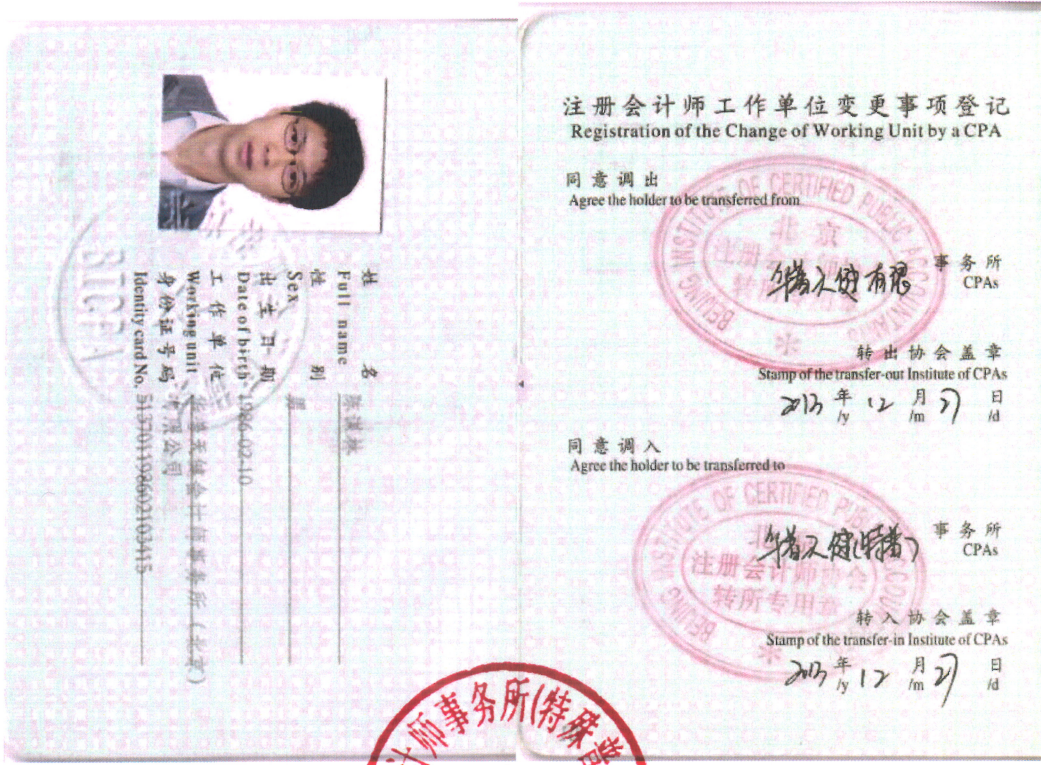 姓 名
Full name
性 别 男
Sex
出 生 日 期
Date of birth 1986-02-10
工 作 单 位 华普天健会计师事务所（北京）
Working unit
有限公司
身份证号码
Identity card No. 513701198602103415
BICPA
注册会计师工作单位变更事项登记
Registration of the Change of Working Unit by a CPA
同意调出
Agree the holder to be transferred from
BEIJING INSTITUTE OF CERTIFIED PUBLIC ACCOUNTANTS
北京
注册会计师协会
转所专用章
华普天健有限 事务所
CPAs
转出协会盖章
Stamp of the transfer-out Institute of CPAs
2013 年 12 月 27 日
/y /m /d
同意调入
Agree the holder to be transferred to
BEIJING INSTITUTE OF CERTIFIED PUBLIC ACCOUNTANTS
北京
注册会计师协会
转所专用章
华普天健(特普) 事务所
CPAs
转入协会盖章
Stamp of the transfer-in Institute of CPAs
2013 年 12 月 27 日
/y /m /d
计师事务所(特殊普